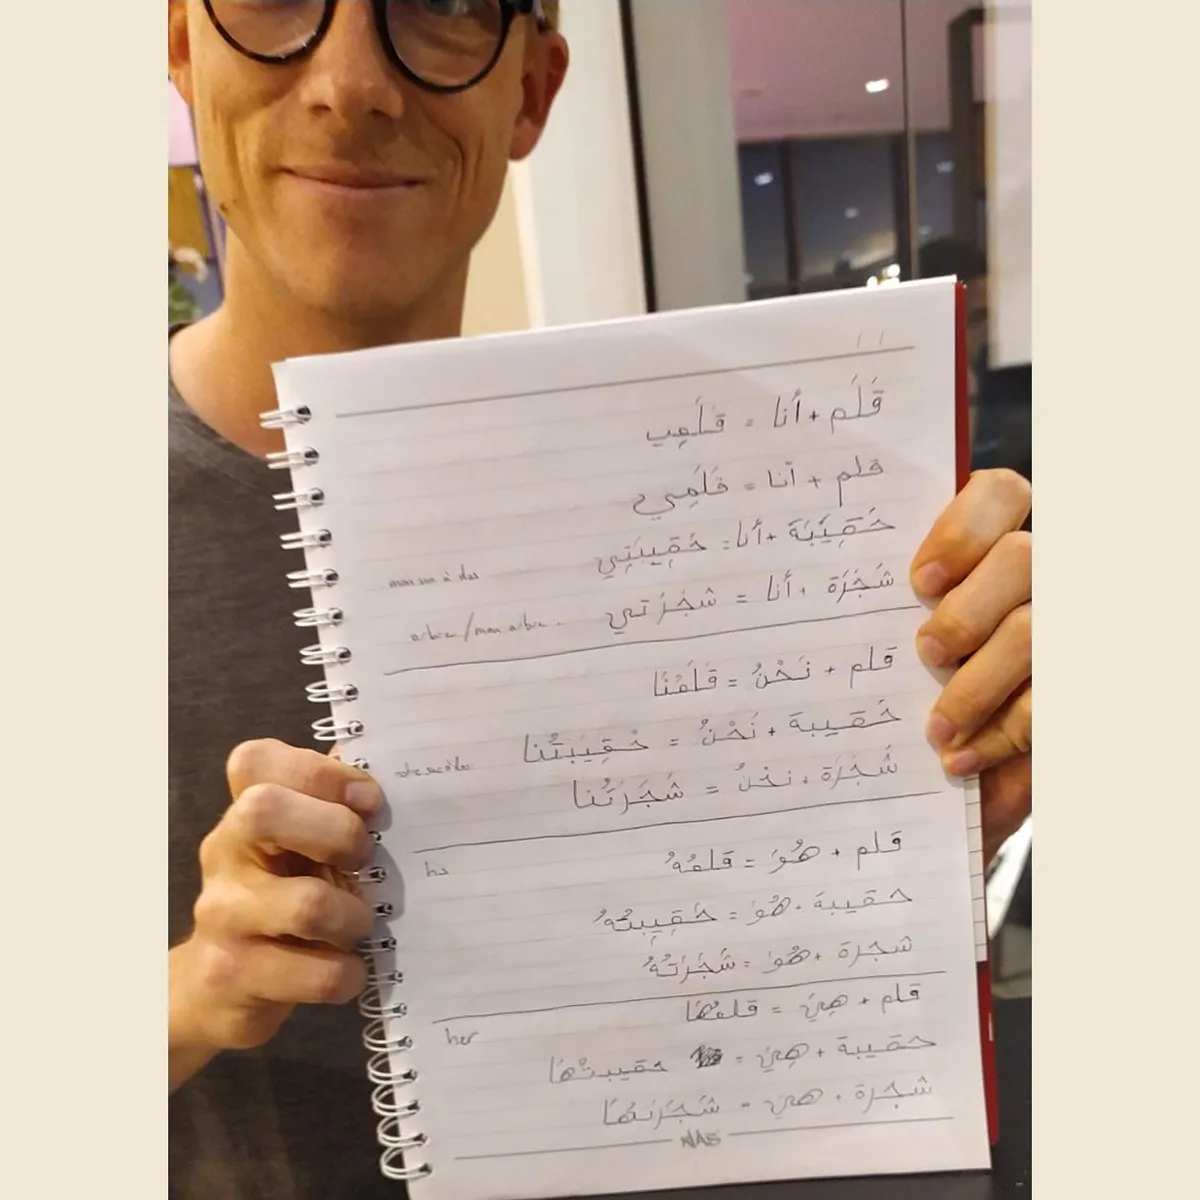 قَلَم + أنا = قَلَمِي
قلم + أنا = قَلَمِي
حَقِيبَة + أنا = حَقِيبَتِي
mon sac à dos
شَجَرَة + أنا = شَجَرَتي
arbre/mon arbre.
قلم + نَحْنُ = قَلَمُنَا
حَقيبة + نَحْنُ = حَقِيبَتُنا
notre sac à dos
شَجَرَة + نحنُ = شَجَرَتُنا
قلم + هُوَ = قلمُهُ
his
حقيبة + هُوَ = حَقِيبتُهُ
شجرة + هُوَ = شَجَرَتُهُ
قلم + هِيَ = قلمُهَا
her
حقيبة + هِيَ = حقيبتُهَا
شجرة + هي = شَجَرَتُهَا